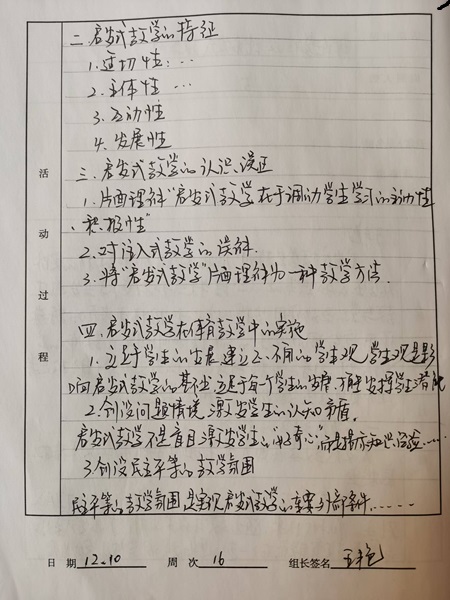 二.启发式教学的特征
1.适切性:…
2.主体性 …
3.互动性
4.发展性
三.启发式教学的认识误区
1.片面理解"启发式教学在于调动学生学习的主动性
、积极性"
2.对注入式教学的误解.
3.将"启发式教学"片面理解为一种教学方法.
四.启发式教学在体育教学中的实施
1.立足于学生的发展建立不同的学生观,学生观是影
响启发式教学的基础立足于每一个学生的发展,不断发掘学生潜能
2.创设问题情境,激发学生的认知矛盾.
启发式教学不是盲目激发学生的"好奇心"而是揭示知识……
3.创设民主平等的教学氛围
民主平等的教学氛围是实现启发式教学的重要外部条件……
活动过程
日 期 12.10 周 次 16 组长签名